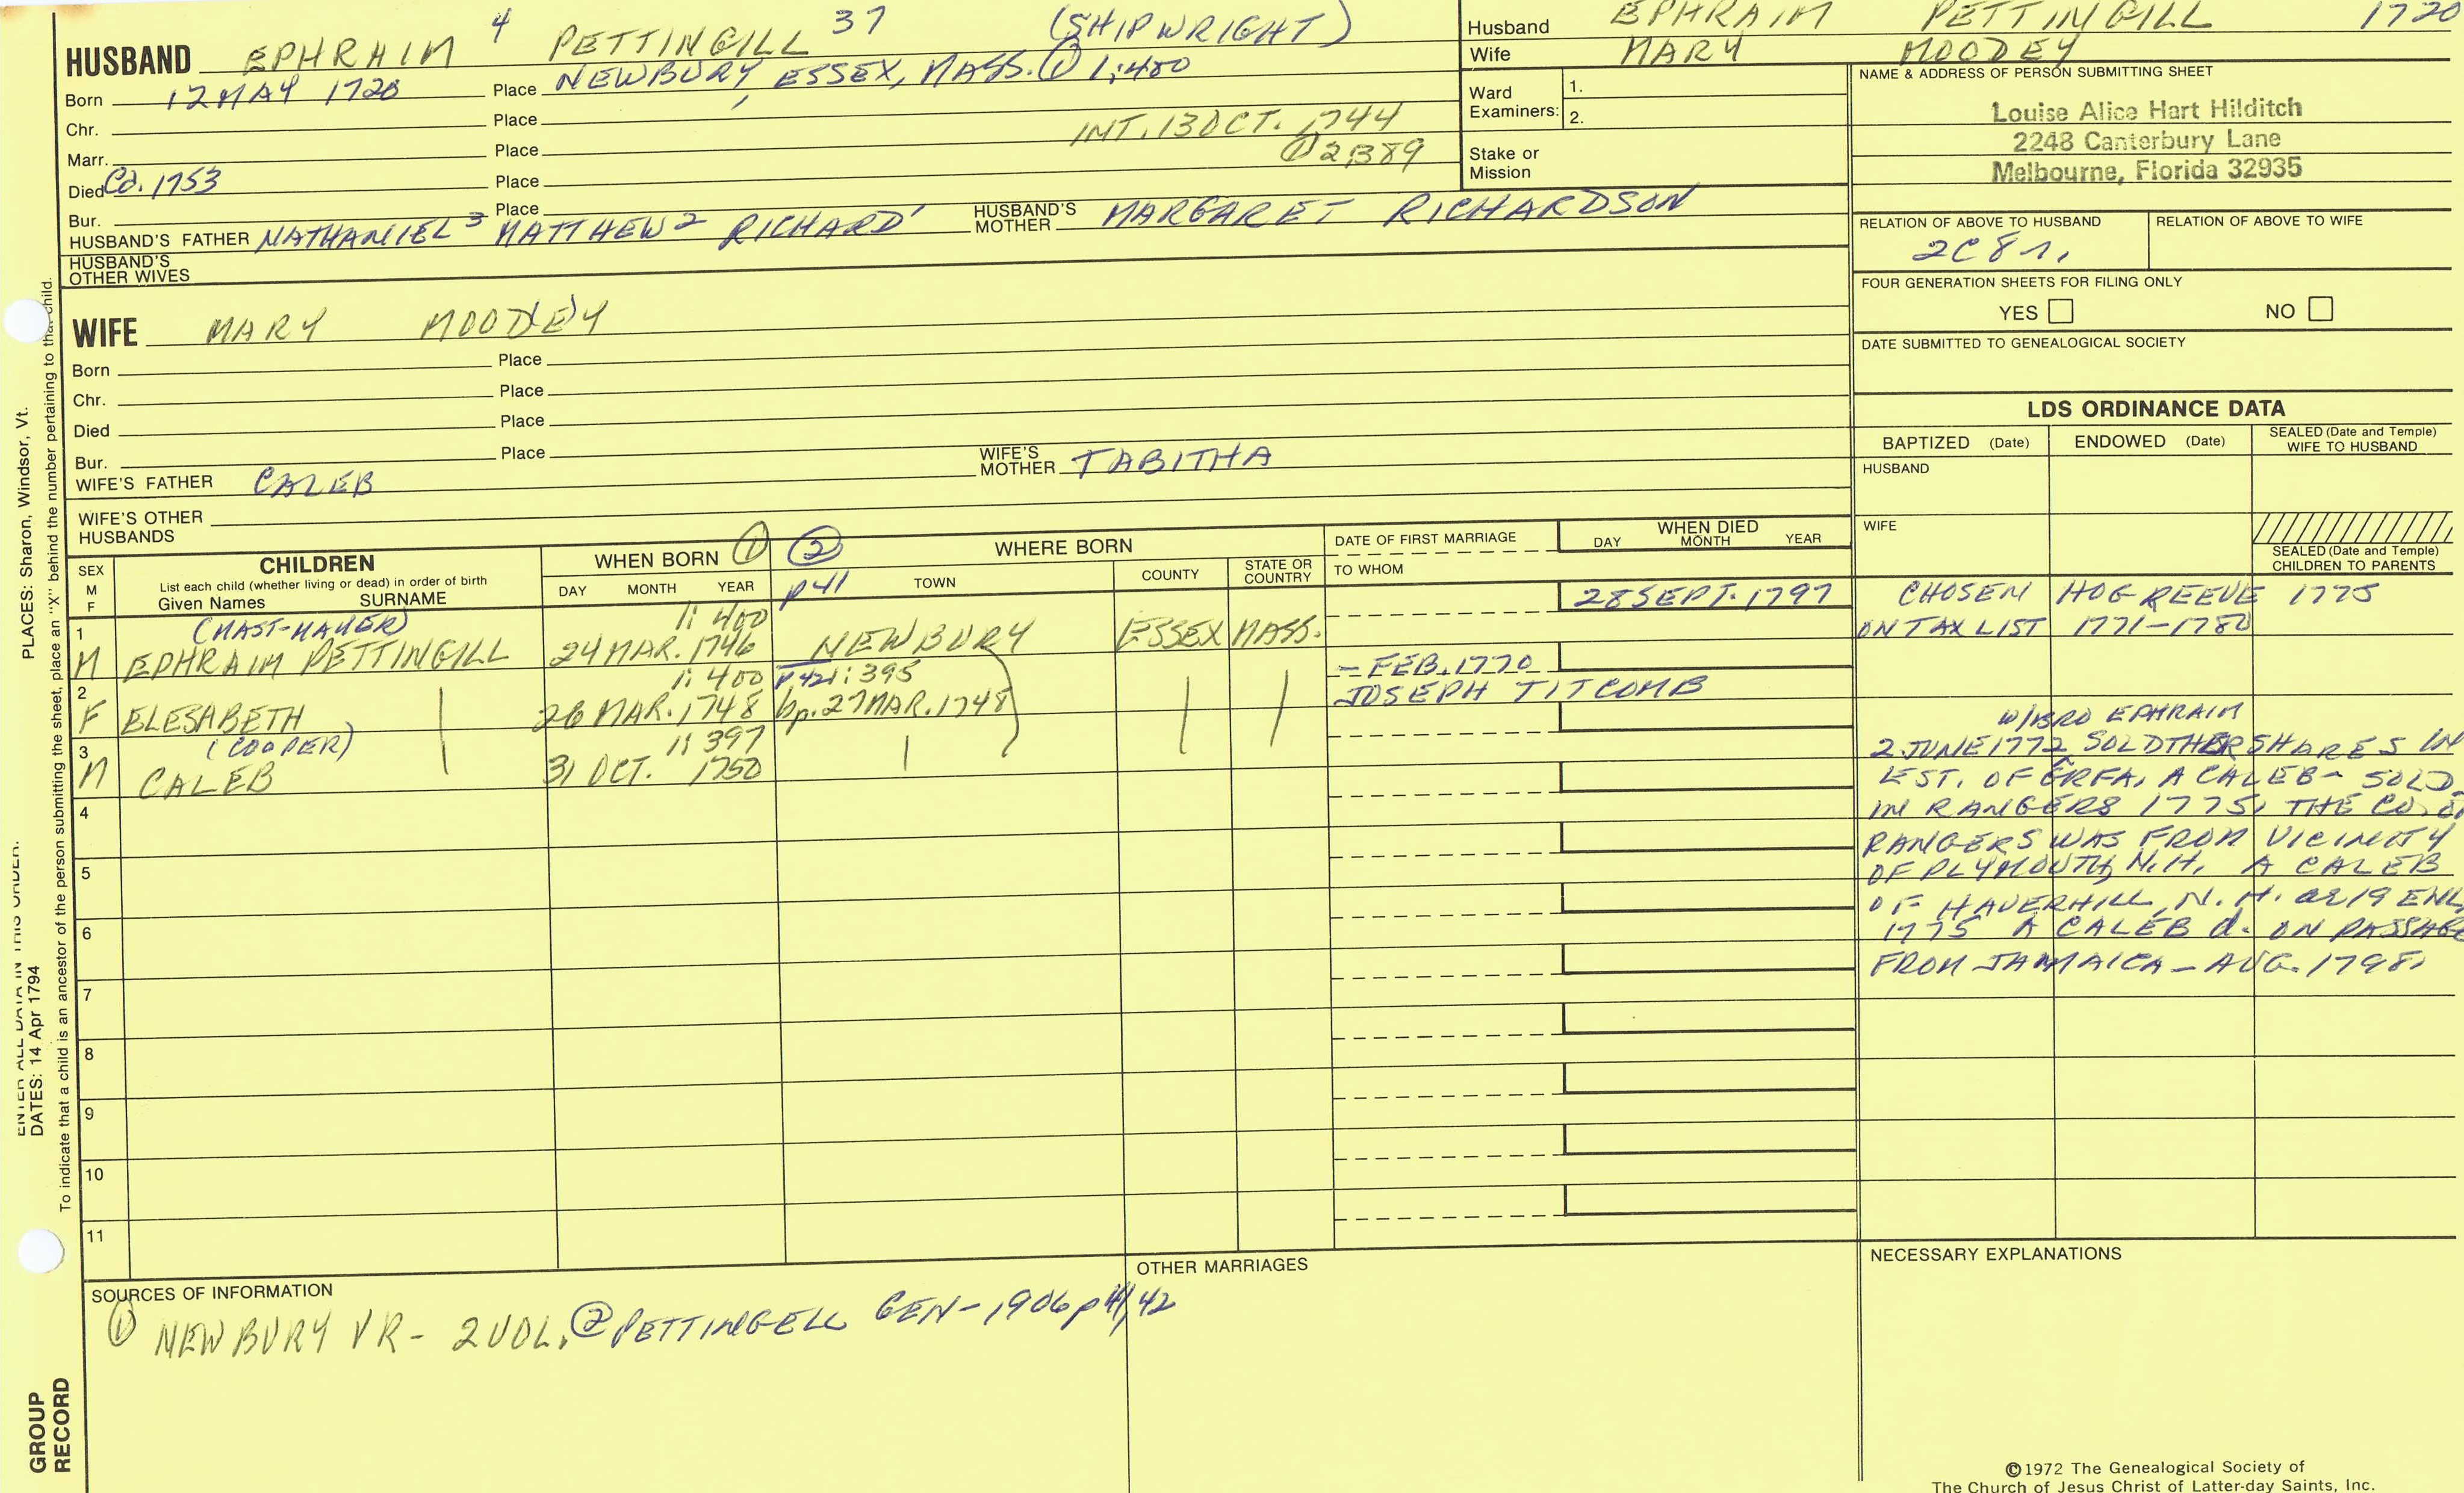 HUSBAND EPHRAIM 4 PETTINGILL 37 (SHIPWRIGHT)
Born 12 MAY 1720 Place NEWBURY, ESSEX, MASS. ① 1:400
Chr. Place
Marr. Place INT. 13 OCT. 1744
① 2,389
Died Ca. 1753 Place
Bur. Place
HUSBAND'S FATHER NATHANIEL 3 MATTHEW 2 RICHARD 1 HUSBAND'S MOTHER MARGARET RICHARDSON
HUSBAND'S OTHER WIVES
Husband EPHRAIM PETTINGILL 1720
Wife MARY MOODEY
Ward Examiners: 1.
2.
Stake or Mission
NAME & ADDRESS OF PERSON SUBMITTING SHEET
Louise Alice Hart Hilditch
2248 Canterbury Lane
Melbourne, Florida 32935
RELATION OF ABOVE TO HUSBAND RELATION OF ABOVE TO WIFE
2C8r.
FOUR GENERATION SHEETS FOR FILING ONLY
YES NO
DATE SUBMITTED TO GENEALOGICAL SOCIETY
WIFE MARY MOOD(E)Y
Born Place
Chr. Place
Died Place
Bur. Place
WIFE'S FATHER CALEB WIFE'S MOTHER TABITHA
WIFE'S OTHER HUSBANDS
LDS ORDINANCE DATA
BAPTIZED (Date) ENDOWED (Date) SEALED (Date and Temple) WIFE TO HUSBAND
HUSBAND
WIFE
SEALED (Date and Temple) CHILDREN TO PARENTS
SEX M F
CHILDREN
List each child (whether living or dead) in order of birth
Given Names SURNAME
WHEN BORN ① ②
DAY MONTH YEAR p 41
WHERE BORN
TOWN COUNTY STATE OR COUNTRY
DATE OF FIRST MARRIAGE
TO WHOM
WHEN DIED
DAY MONTH YEAR
1 (MAST-MAKER) 1: 400 28 SEPT. 1797 CHOSEN HOG REEVE 1775
M EPHRAIM PETTINGILL 24 MAR. 1746 NEWBURY ESSEX MASS. ON TAX LIST 1771-1780
2 1: 400 p 42 1: 395 - FEB. 1770
F ELESABETH 26 MAR. 1748 bp. 27 MAR. 1748 JOSEPH TITCOMB
3 (COOPER) 1: 397
M CALEB 31 OCT. 1750
W/BRO EPHRAIM
2 JUNE 1772 SOLD THER SHARES IN
EST. OF GRFA, A CALEB - SOLD.
IN RANGERS 1775, THE CO. OF
RANGERS WAS FROM VICINITY
OF PLYMOUTH, N.H. A CALEB
OF HAVERHILL, N.H. ae 19 ENL.
1775 A CALEB d. ON PASSAGE
FROM JAMAICA - AUG. 1798.
4
5
6
7
8
9
10
11
SOURCES OF INFORMATION
① NEWBURY VR - 2 VOL. ② PETTINGELL GEN - 1906 p 41, 42
OTHER MARRIAGES
NECESSARY EXPLANATIONS
©1972 The Genealogical Society of
The Church of Jesus Christ of Latter-day Saints, Inc.
ENTER ALL DATA IN THIS ORDER:
DATES: 14 Apr 1794
PLACES: Sharon, Windsor, Vt.
To indicate that a child is an ancestor of the person submitting the sheet, place an "X" behind the number pertaining to that child.
GROUP
RECORD